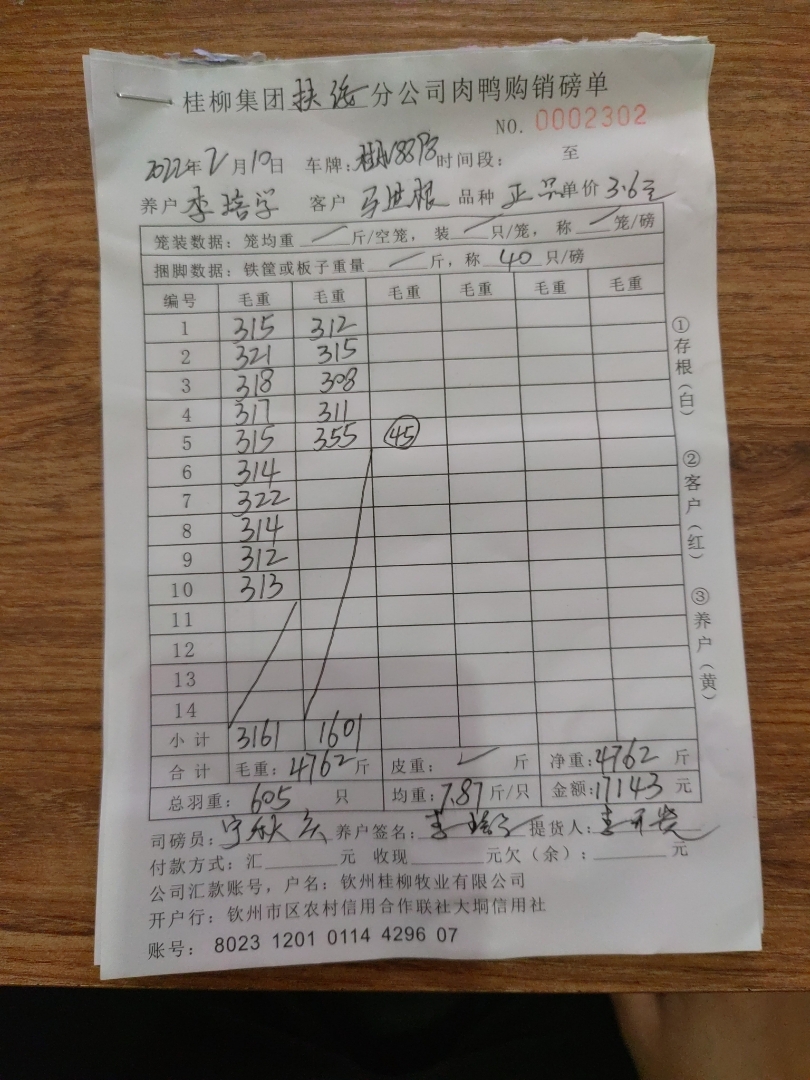 桂柳集团扶绥分公司肉鸭购销磅单
NO. 0002302
2022年2月10日 车牌: 时间段: 至
养户 李培学 客户 马进根 品种 正品 单价 3.6元
笼装数据: 笼均重 / 斤/空笼, 装 / 只/笼, 称 / 笼/磅
捆脚数据: 铁筐或板子重量 / 斤, 称 40 只/磅
编号 毛重 毛重 毛重 毛重 毛重 毛重
1 315 312
2 321 315
3 318 308
4 317 311
5 315 355 45
6 314
7 322
8 314
9 312
10 313
11
12
13
14
小计 3161 1601
合计 毛重: 4762 斤 皮重: 斤 净重: 4762 斤
总羽重: 605 只 均重: 7.87 斤/只 金额: 17143 元
司磅员: 养户签名: 提货人:
付款方式: 汇 元 收现 元欠(余): 元
公司汇款账号, 户名: 钦州桂柳牧业有限公司
开户行: 钦州市区农村信用合作联社大垌信用社
账号: 8023 1201 0114 4296 07
①存根(白)
②客户(红)
③养户(黄)